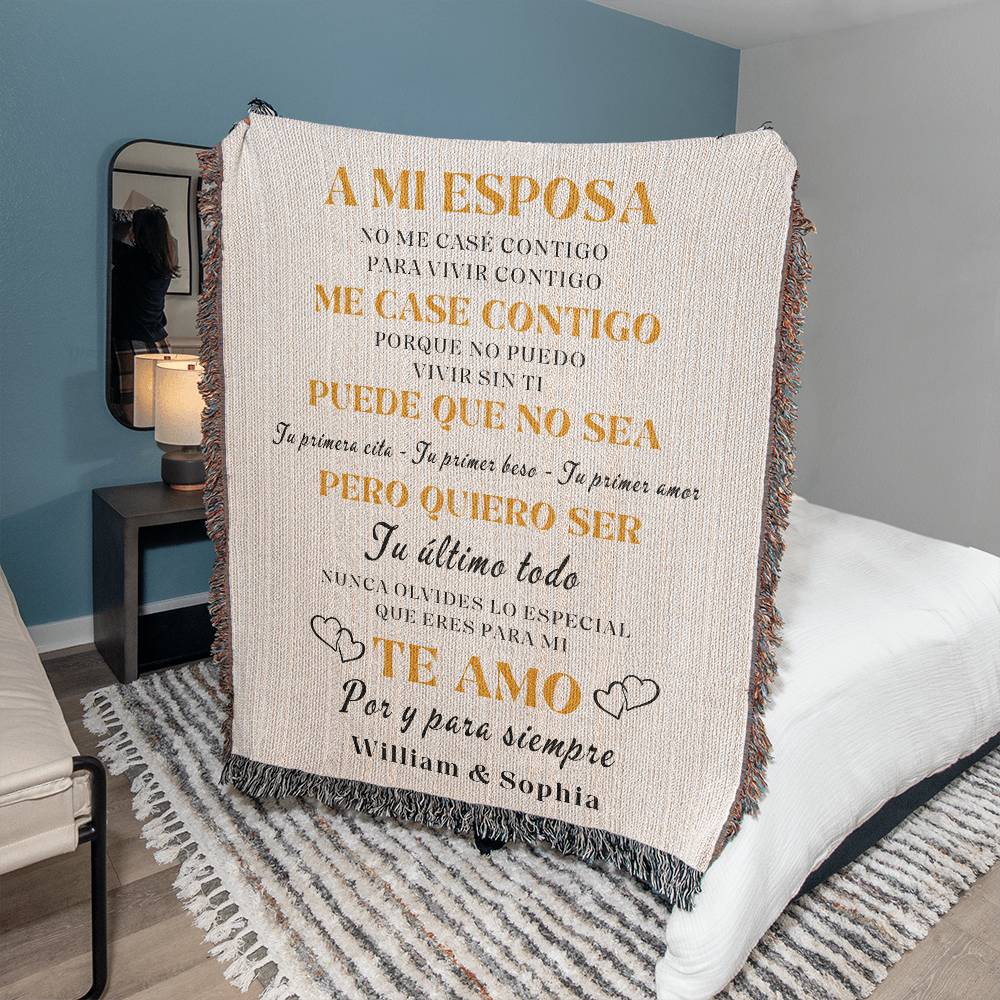 A MI ESPOSA
NO ME CASÉ CONTIGO
PARA VIVIR CONTIGO
ME CASE CONTIGO
PORQUE NO PUEDO
VIVIR SIN TI
PUEDE QUE NO SEA
Tu primera cita - Tu primer beso - Tu primer amor
PERO QUIERO SER
Tu último todo
NUNCA OLVIDES LO ESPECIAL
QUE ERES PARA MI
TE AMO
Por y para siempre
William & Sophia